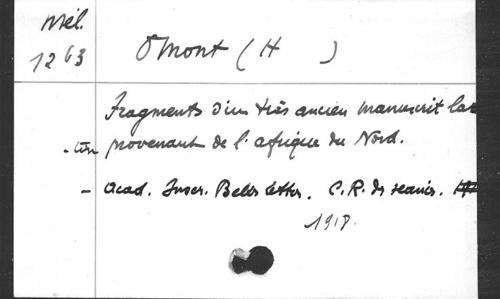 Mél.
1263
Omont (H )
Fragments d'un très ancien manuscrit la-
-tin provenant de l'afrique du Nord.
- Acad. Inscr. Belles lettres. C.R. des séances.
1918.